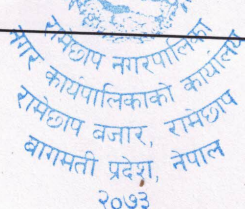 रामेछाप नगरपालिका
नगर कार्यपालिकाको कार्यालय
रामेछाप बजार, रामेछाप
बागमती प्रदेश, नेपाल
२०७३